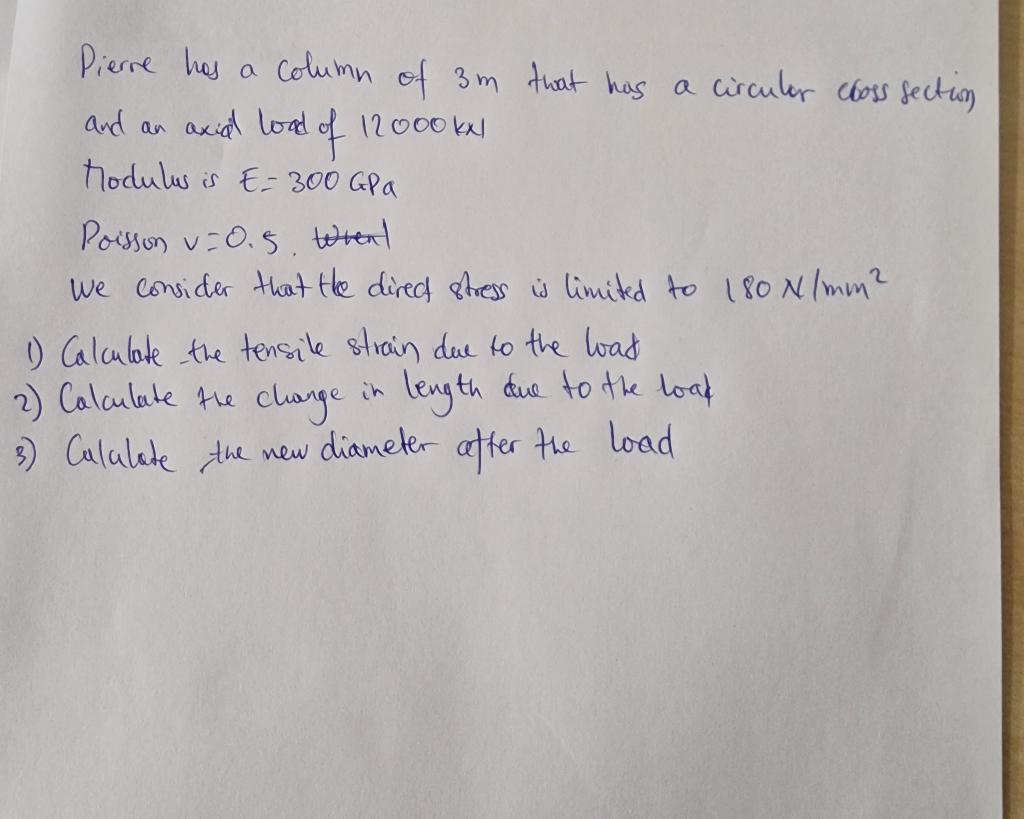 Pierre has a column of 3m that has a circular cross section
and an axial load of 12000kN
Modulus is E= 300 GPa
Poisson v=0.5.
We consider that the direct stress is limited to 180 N/mm²
1) Calculate the tensile strain due to the load
2) Calculate the change in length due to the load
3) Calulate the new diameter after the load